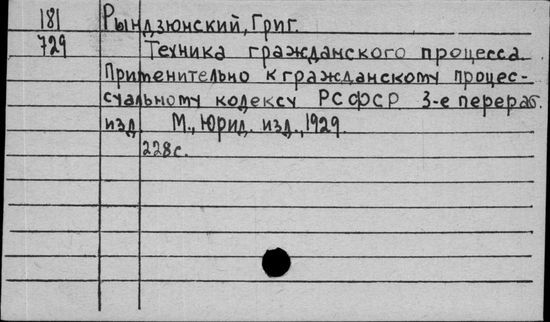 181 Рындзюнский, Григ.
729 Техника гражданского процесса.
Применительно к гражданскому процес-
суальному кодексу РСФСР 3-е перераб.
изд. М., Юрид. изд., 1929.
228с.